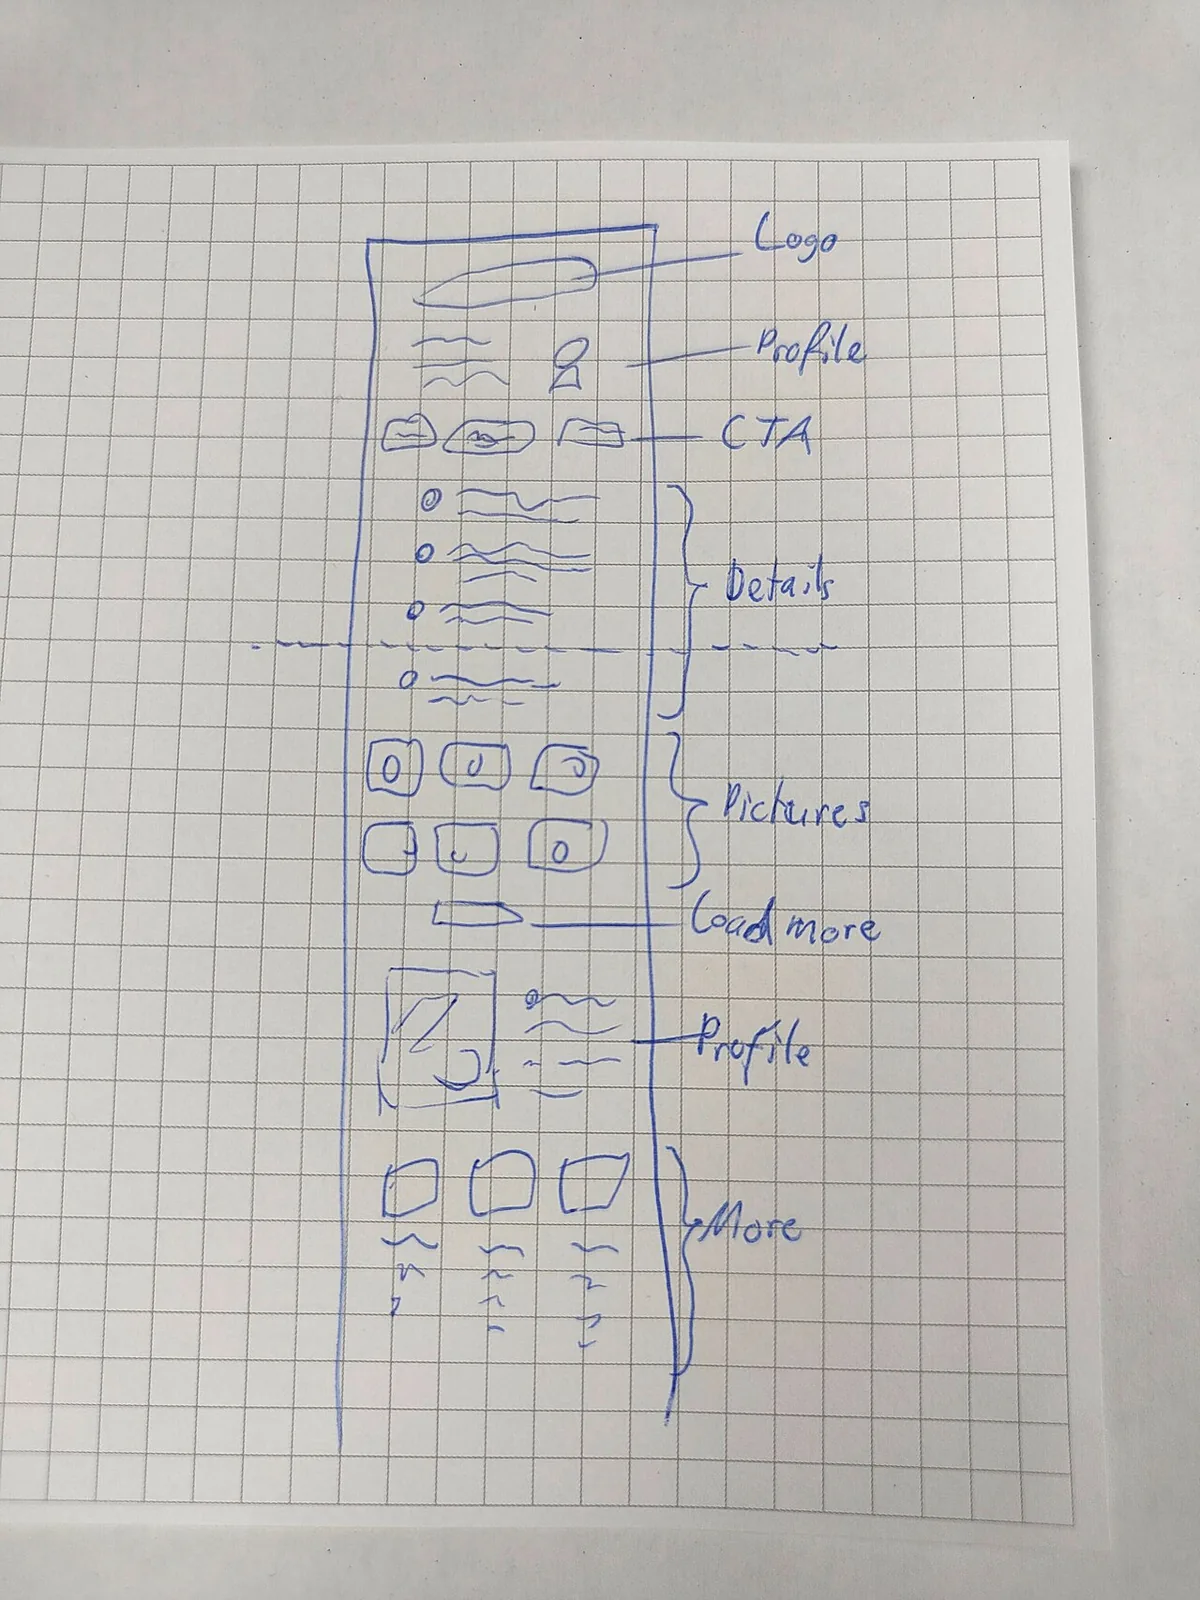 Logo
Profile
CTA
Details
Pictures
Load more
Profile
More